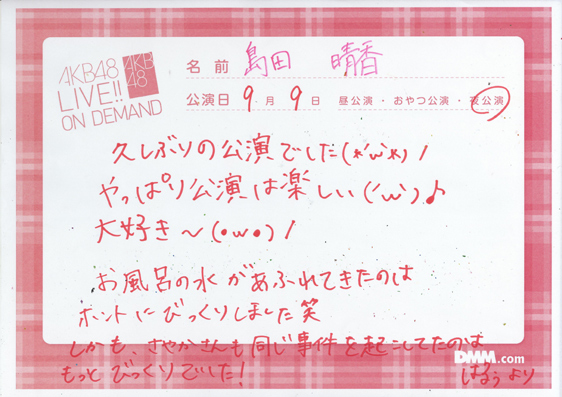 AKB48
LIVE!!
ON DEMAND
AKB
48
名前 島田 晴香
公演日 9月9日 昼公演・おやつ公演・夜公演
久しぶりの公演でした(*'ω'*)/
やっぱり公演は楽しい('ω')♪
大好き〜(•ω•)/
お風呂の水があふれてきたのは
ホントにびっくりしました笑
しかも、さやかさんも同じ事件を起こしてたのは
もっとびっくりでした!
DMM.com
はるぅより